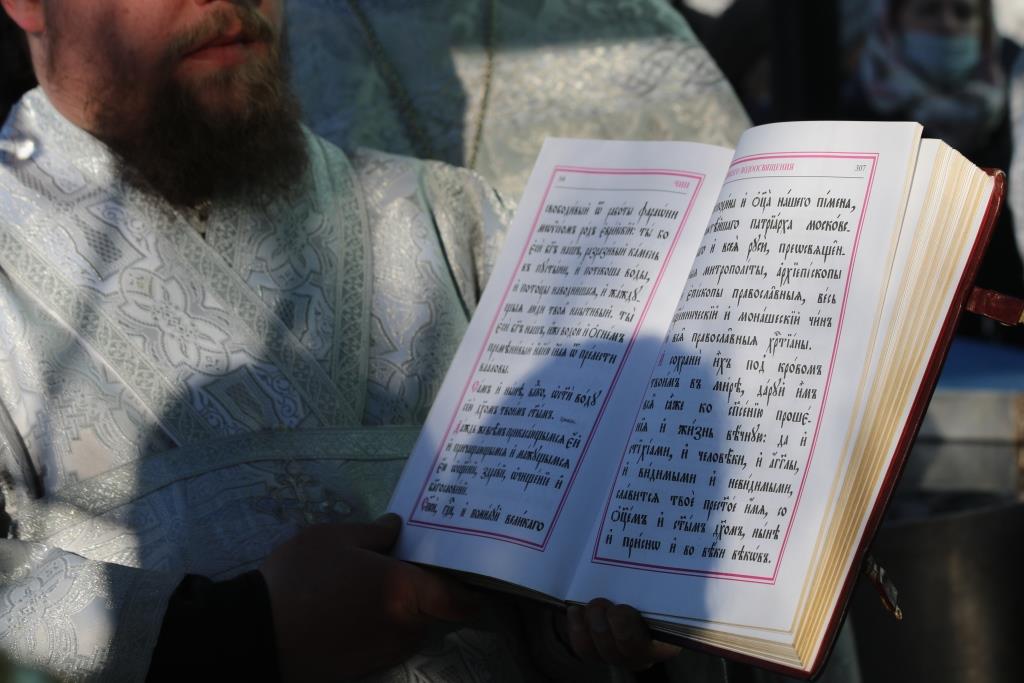 ЧИН
свободивый ѿ рабѡты фараѡни
мѡѷсеѡмъ родъ еврейскїй: ты ко
еси бг҃ъ нашъ, разразивый камень
въ пꙋстыни, и потекоша воды,
и потоцы наводнишасѧ, и жаждꙋ
щыѧ люди твоѧ насытивый: ты
еси бг҃ъ нашъ, иже водою и ѻгнемъ
ѿ прелести
вааловы.
Самъ и нынѣ, влⷣко, ѡст҃и водꙋ
сїю дх҃омъ твоимъ ст҃ымъ.
Даждь же всѣмъ прикасающымсѧ ей
и причащающымсѧ и мажꙋщымсѧ
ею ѡсщенїе, здравїе, ѡчищенїе и
благословенїе.
Спаси, гдⷭи, и помилꙋй великаго
ВОДОѠСВЯЩЕНИЯ 307
и ѻц҃а нашего пімена,
патрїарха москов-
и всеѧ рꙋси, преѡсвѧщен-
митрополїты, архїепⷭкопы
епⷭкопы правосла̑вныѧ, весь
и монашескїй чинъ
всѧ правосла̑вныѧ хрⷭтїаны.
сохрани ихъ под кровомъ
твоимъ въ мирѣ, дарꙋй имъ
всѧ ꙗже ко сп҃сенїю проше-
нїѧ и жизнь вѣчнꙋю: да и
стїхїами, и человѣки, и аг҃глы,
и видимыми и невидимыми,
славитсѧ твое прест҃ое имѧ, со
ѻц҃емъ и ст҃ымъ дх҃омъ, нынѣ
и приснѡ и во вѣки вѣкѡвъ.